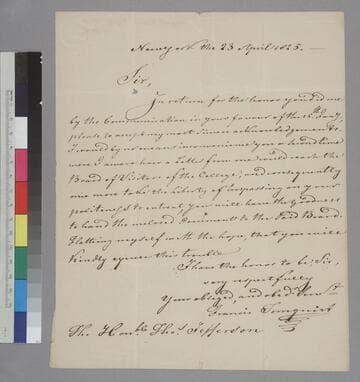 Newyork the 23 April 1825.
Sir,
In return for the honor you did me
by the Communication in your favour of the 15th Inst,
please to accept my most sincere acknowledgements.
I would by no means inconvenience you a second time
were I aware how a Letter from me would reach the
Board of Visitors of the College, and consequently
once more take the liberty of trespassing on your
politeness to entreat, you will have the Goodness
to hand the inclosed Document to the said Board.
Flatting myself with the hope, that you will
kindly excuse this trouble
I have the honor to be Sir,
very respectfully
Your obliged, and obed. Serv.t
Francis
The Honble Thos. Jefferson